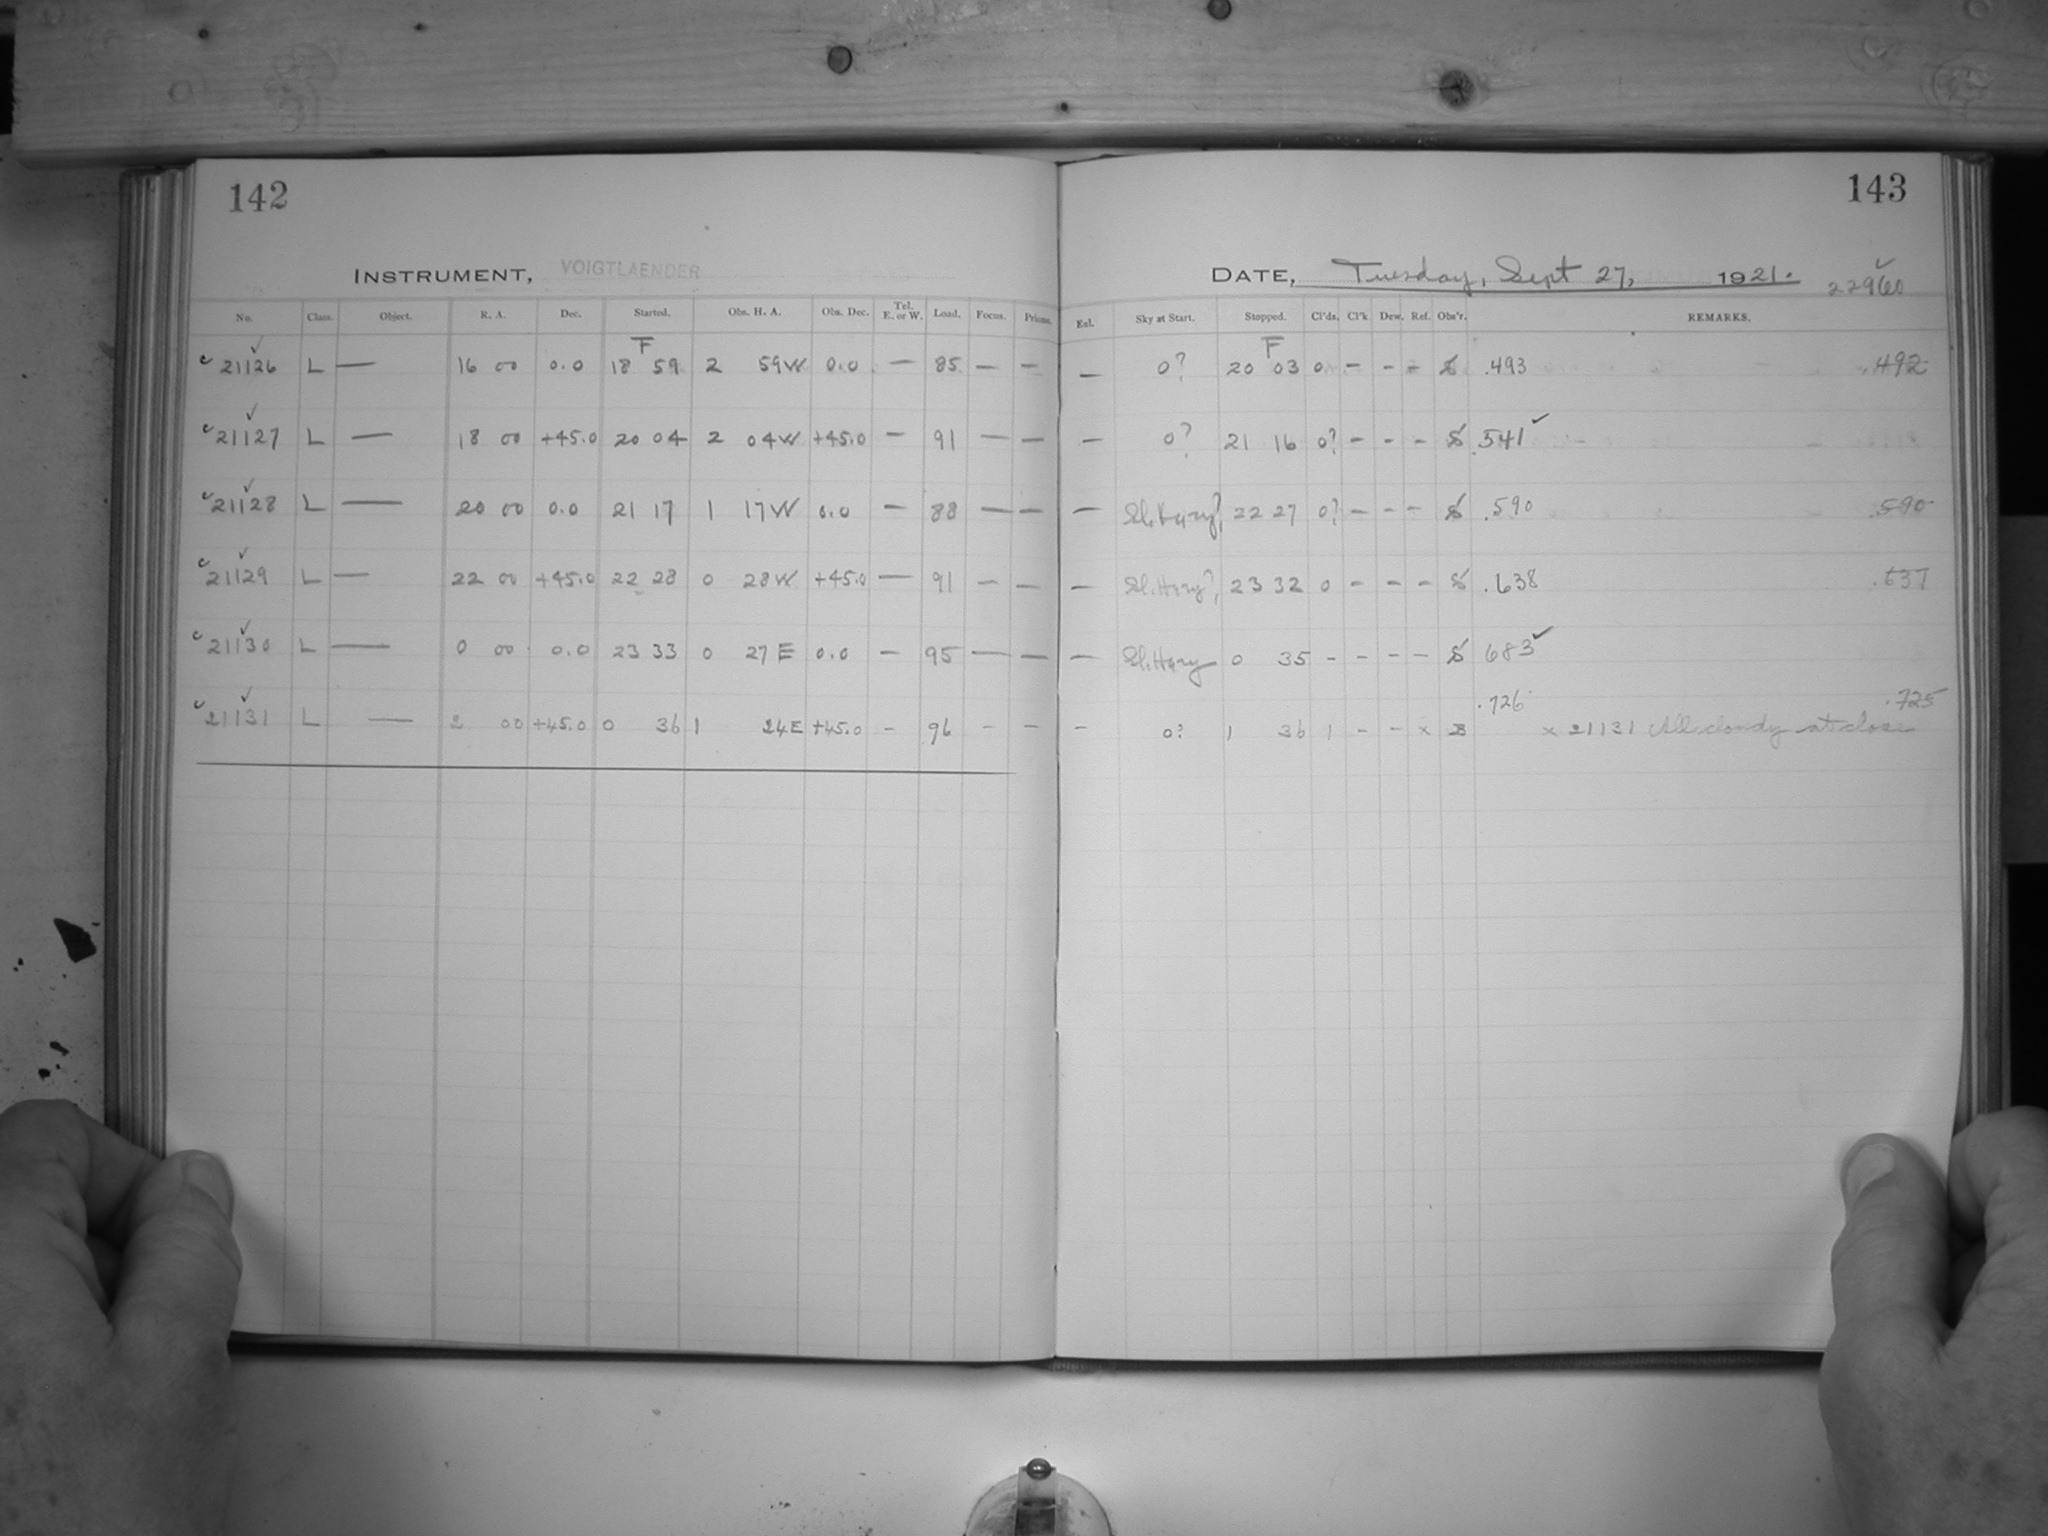 142
INSTRUMENT, VOIGTLAENDER
No. Class. Object. R. A. Dec. Started. Obs. H. A. Obs. Dec. Tel. E. or W. Load. Focus. Prisms.
c 21126 ✓ L — 16 00 0.0 F 18 59 2 59W 0.0 — 85 — —
c 21127 ✓ L — 18 00 +45.0 20 04 2 04W +45.0 — 91 — —
c 21128 ✓ L — 20 00 0.0 21 17 1 17W 0.0 — 88 — —
c 21129 ✓ L — 22 00 +45.0 22 28 0 28W +45.0 — 91 — —
c 21130 ✓ L — 0 00 0.0 23 33 0 27E 0.0 — 95 — —
c 21131 ✓ L — 2 00 +45.0 0 36 1 24E +45.0 - 96 - -
143
DATE, Tuesday, Sept 27, 1921. 22960 ✓
Enl. Sky at Start. Stopped. Cl'ds. Cl'k Dew. Ref. Obs'r. REMARKS.
— 0? F 20 03 0 - - - .493 .492
— 0? 21 16 0? - - - .541 ✓
— Sl. Hazy? 22 27 0? - - - .590 .590
— Sl. Hazy? 23 32 0 - - - .638 .637
— Sl. Hazy 0 35 - - - - 683 ✓
- 0? 1 36 1 - - x .726 x 21131 All cloudy at close .725